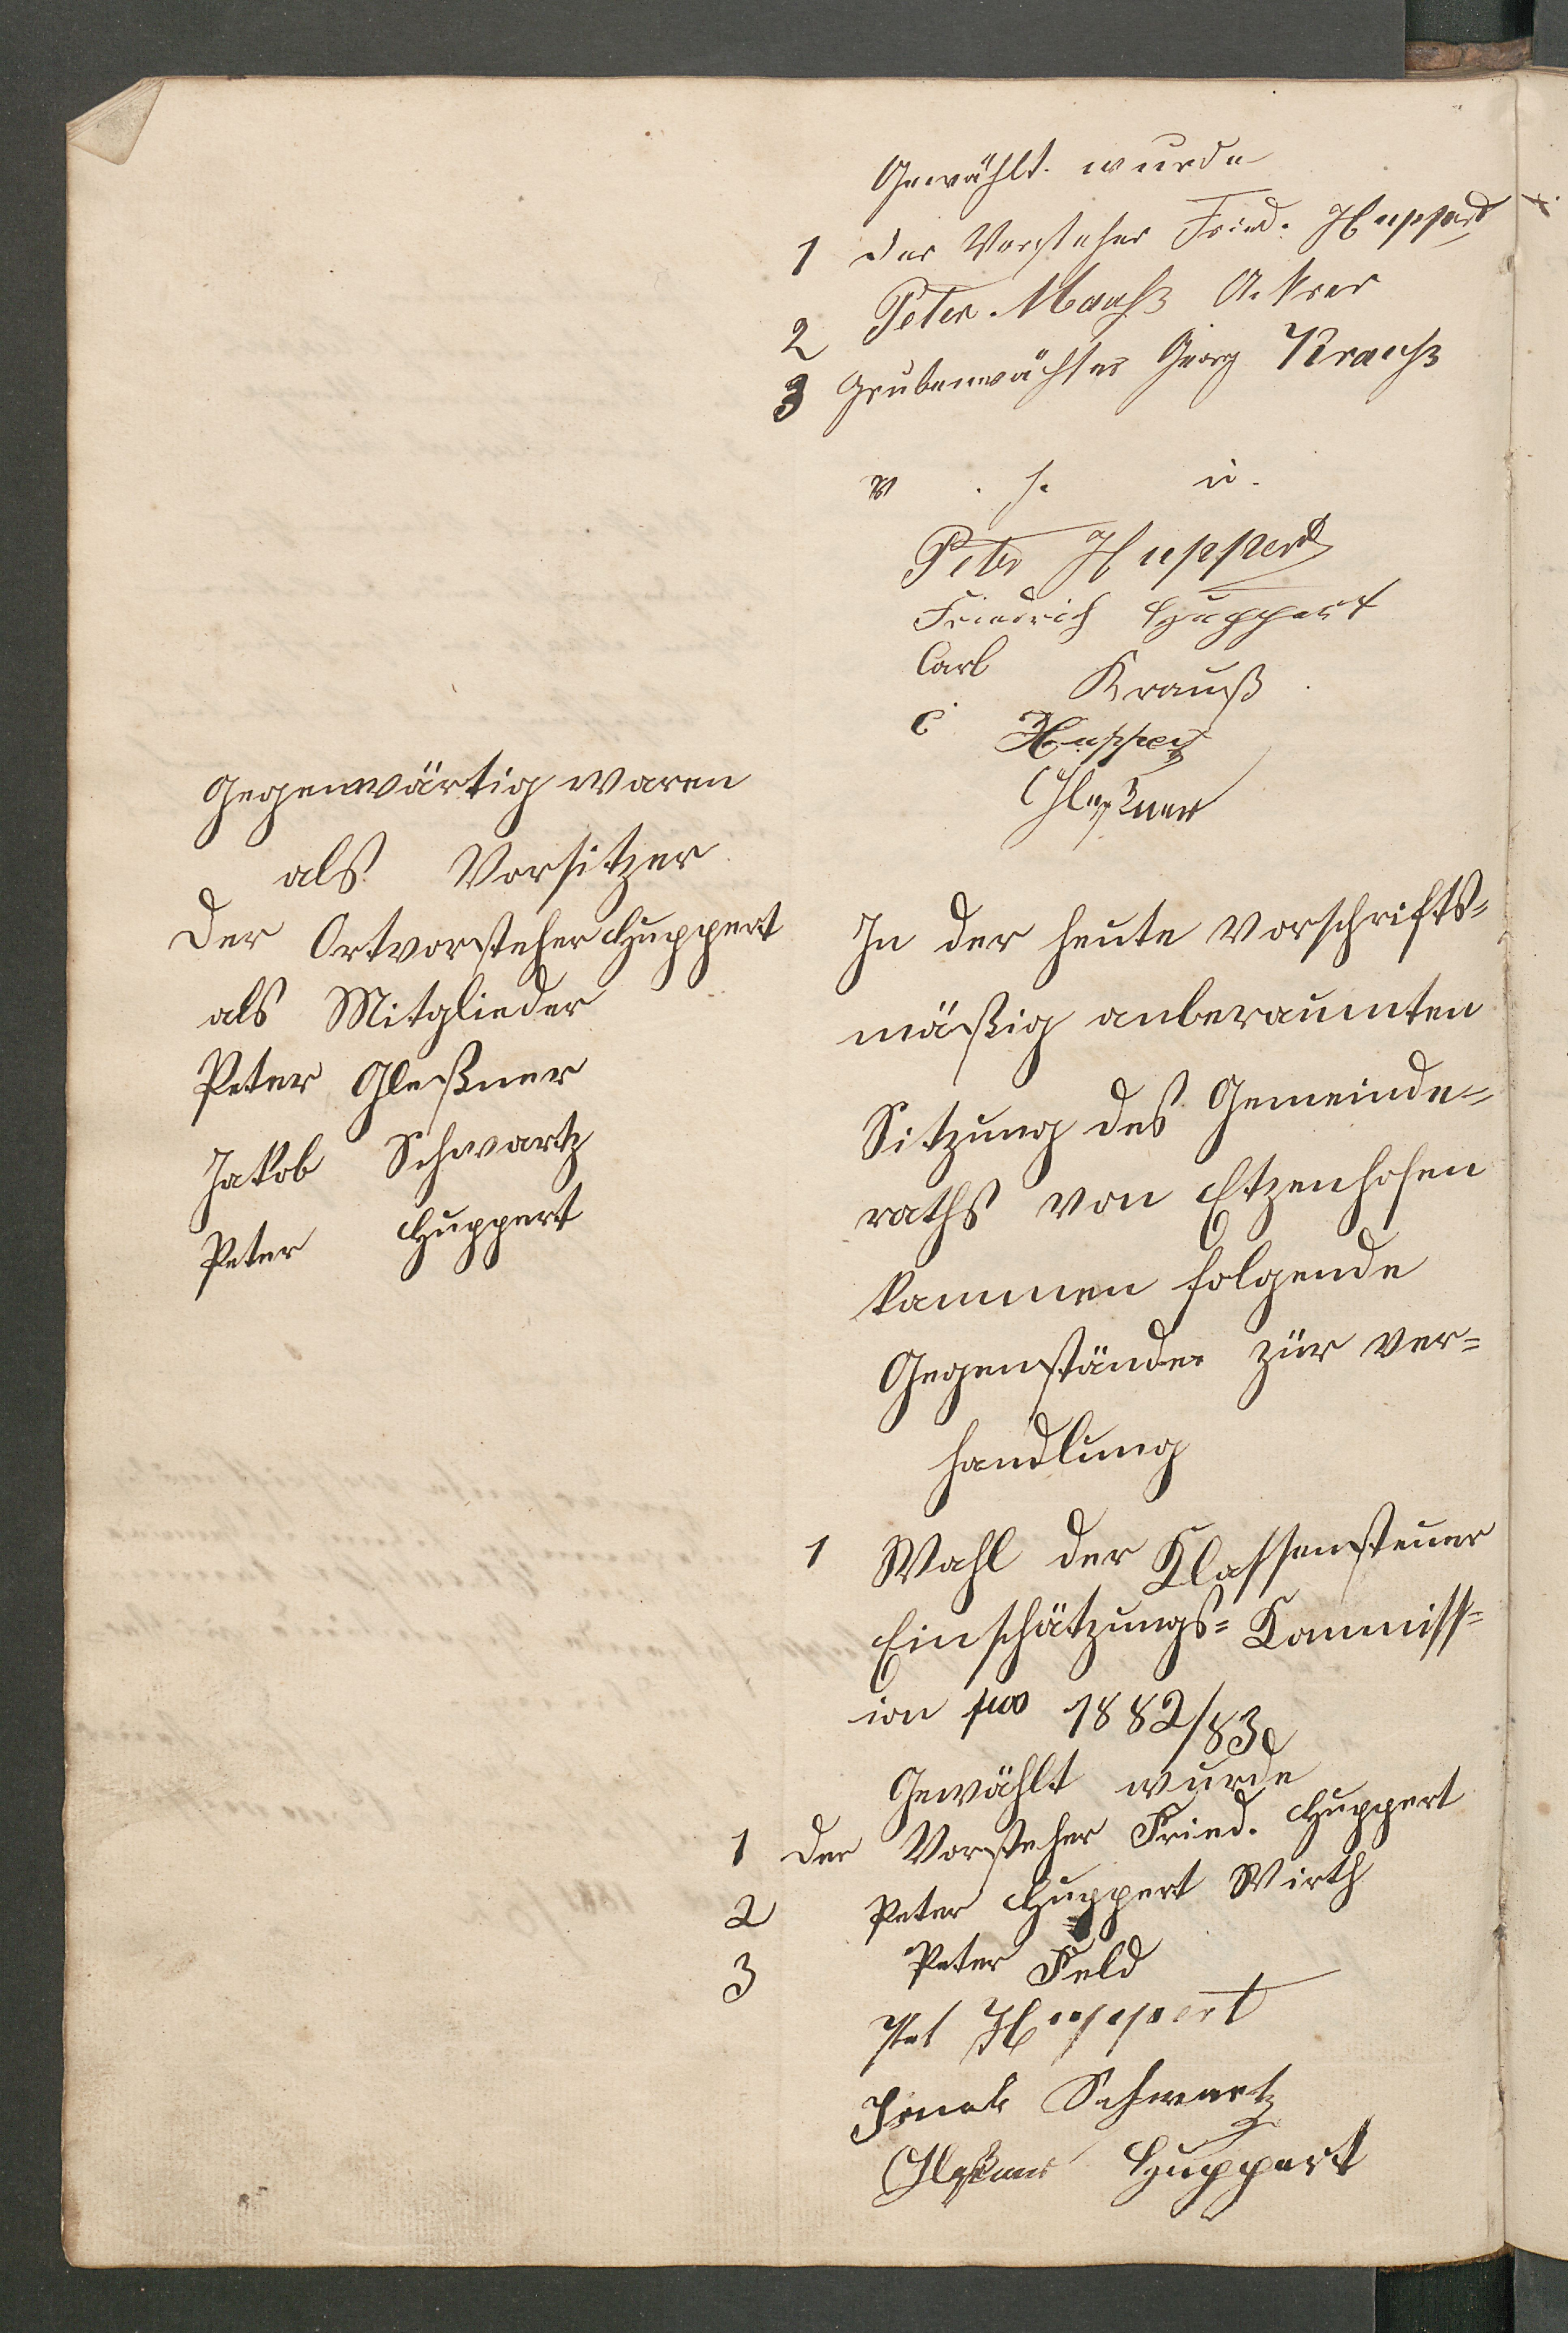 Gewählt wurde
1 der Vorsteher Fried. Huppert
2 Peter Mauß Ackrer
3 Grubenwächter Georg Krauß
v. s. u.
Peter Huppert
Friedrich Huppert
Carl Krauß
C Huppert
Gleßner
Gegenwärtig waren
als Vorsitzer
der Ortvorsteher Huppert
als Mitglieder
Peter Gleßner
Jakob Schwartz
Peter Huppert
In der heute vorschrifts=
mäßig anberaumten
Sitzung des Gemeinde=
raths von Etzenhofen
kammen folgende
Gegenstände zur ver=
handlung
1 Wahl der Klassensteuer
Einschätzungs= Kommiss=
ion pro 1882/83
Gewählt wurde
1 der Vorsteher Fried. Huppert
2 Peter Huppert Wirth
3 Peter Feld
Pet Huppert
Schwartz
Gleßner Huppert